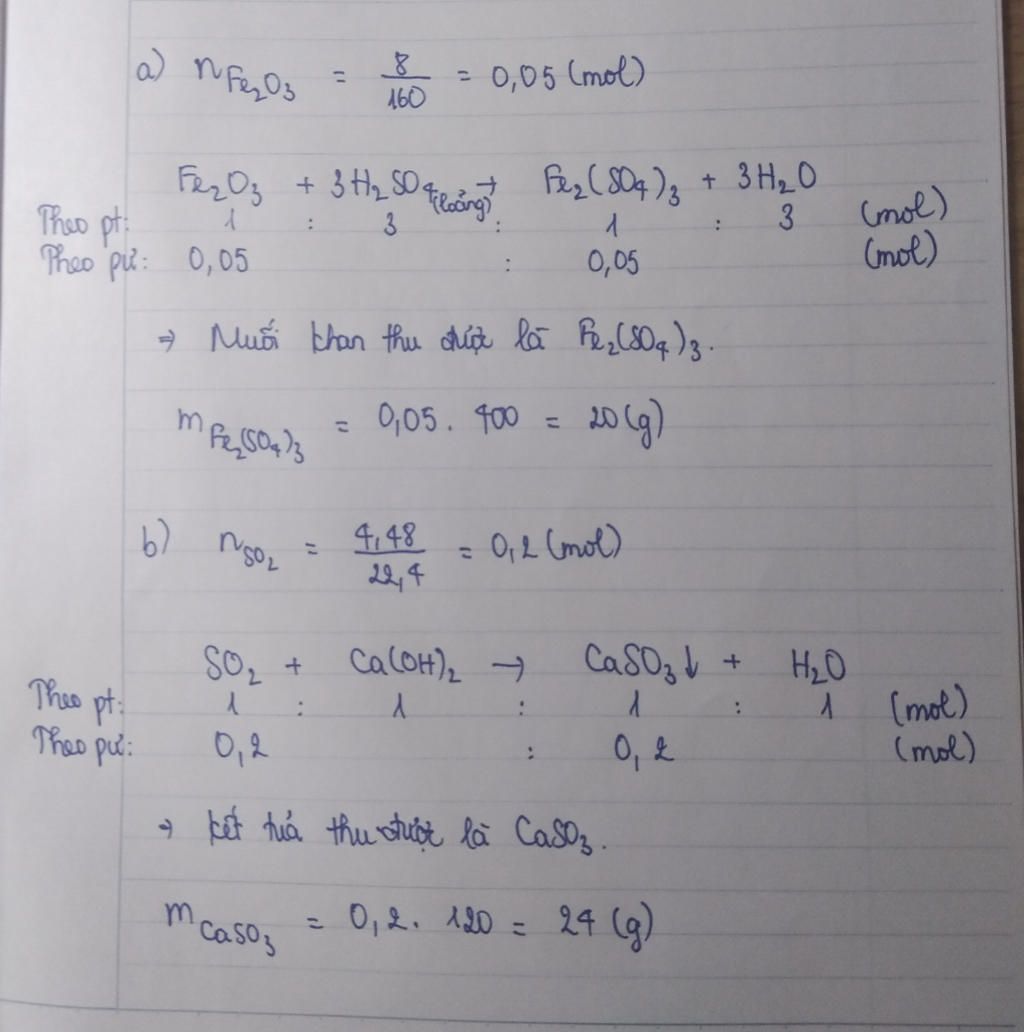 a) nFe₂O₃ = 8/160 = 0,05 (mol)
Fe₂O₃ + 3H₂SO₄(loãng) → Fe₂(SO₄)₃ + 3H₂O
Theo pt: 1 : 3 : 1 : 3 (mol)
Theo pư: 0,05 : 0,05 (mol)
⇒ Muối khan thu được là Fe₂(SO₄)₃.
mFe₂(SO₄)₃ = 0,05. 400 = 20 (g)
b) nSO₂ = 4,48/22,4 = 0,2 (mol)
SO₂ + Ca(OH)₂ → CaSO₃↓ + H₂O
Theo pt: 1 : 1 : 1 : 1 (mol)
Theo pư: 0,2 : 0,2 (mol)
⇒ Kết tủa thu được là CaSO₃.
mCaSO₃ = 0,2. 120 = 24 (g)